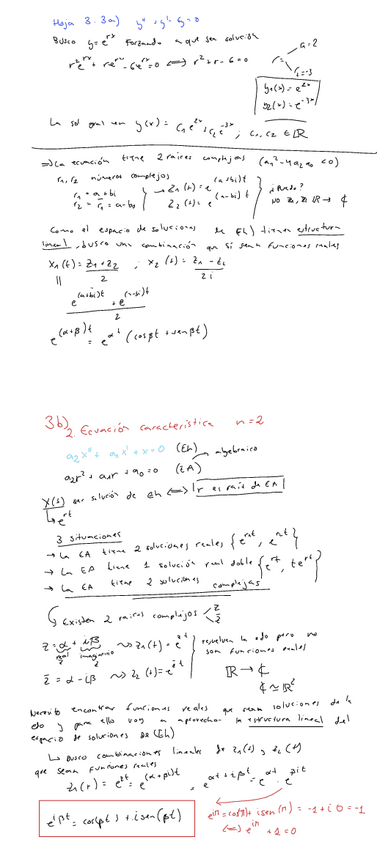 Hoja 3. 3a) y'' + y' - 6y = 0
Busco y = e^{rx} Forzando a que sea solución
r²e^{rx} + re^{rx} - 6e^{rx} = 0 ⟺ r² + r - 6 = 0
y₁(x) = e^{2x}
y₂(x) = e^{-3x}
La sol gral y(x) = c₁e^{2x} + c₂e^{-3x} ; c₁, c₂ ∈ ℝ
⇒ La ecuación tiene 2 raices complejas (a₁² - 4a₂a₀ < 0)
r₁, r₂ números complejos
r₁ = a + bi
r₂ = r̄₁ = a - bi
z₁(t) = e^{(a+bi)t}
z₂(t) = e^{(a-bi)t}
NO z₁, z₂ ℝ → ₵
Como el espacio de soluciones de (Eh) tienen estructura
lineal, busco una combinación que si sean funciones reales
x₁(t) = z₁ + z₂ / 2 ; x₂(t) = z₁ - z₂ / 2i
||
e^{(a+bi)t} + e^{(a-bi)t} / 2
e^{(α+β)t} = e^{αt} (cos βt + sen βt)
3b)
2. Ecuación característica n=2
a₂x'' + a₁x' + x = 0 (Eh)
a₂r² + a₁r + a₀ = 0 (EA) algebraica
x(t) ser solución de Eh ⟺ r es raíz de EA
e^{rt}
3 situaciones
→ La EA tiene 2 soluciones reales {e^{r₁t}, e^{r₂t}}
→ La EA tiene 1 solución real doble {e^{rt}, te^{rt}}
→ La EA tiene 2 soluciones complejas
Existen 2 raices complejos z z̄
z = α + iβ ⇝ z₁(t) = e^{zt}
real imaginario
z̄ = α - iβ ⇝ z₂(t) = e^{z̄t}
resuelven la edo pero no
son funciones reales
ℝ → ₵
₵ ≃ ℝ²
Necesito encontrar funciones reales que sean soluciones de la
edo y para ello voy a aprovechar la estructura lineal del
espacio de soluciones de (Eh)
↳ Busco combinaciones lineales de z₁(t) y z₂(t)
que sean funciones reales
z₁(t) = e^{zt} = e^{(α+βi)t} = e^{αt+iβt} = e^{αt} · e^{βit}
e^{iβt} = cos(βt) + i sen(βt)
e^{iπ} = cos(π) + i sen(π) = -1 + i 0 = -1
⟺ e^{iπ} + 1 = 0